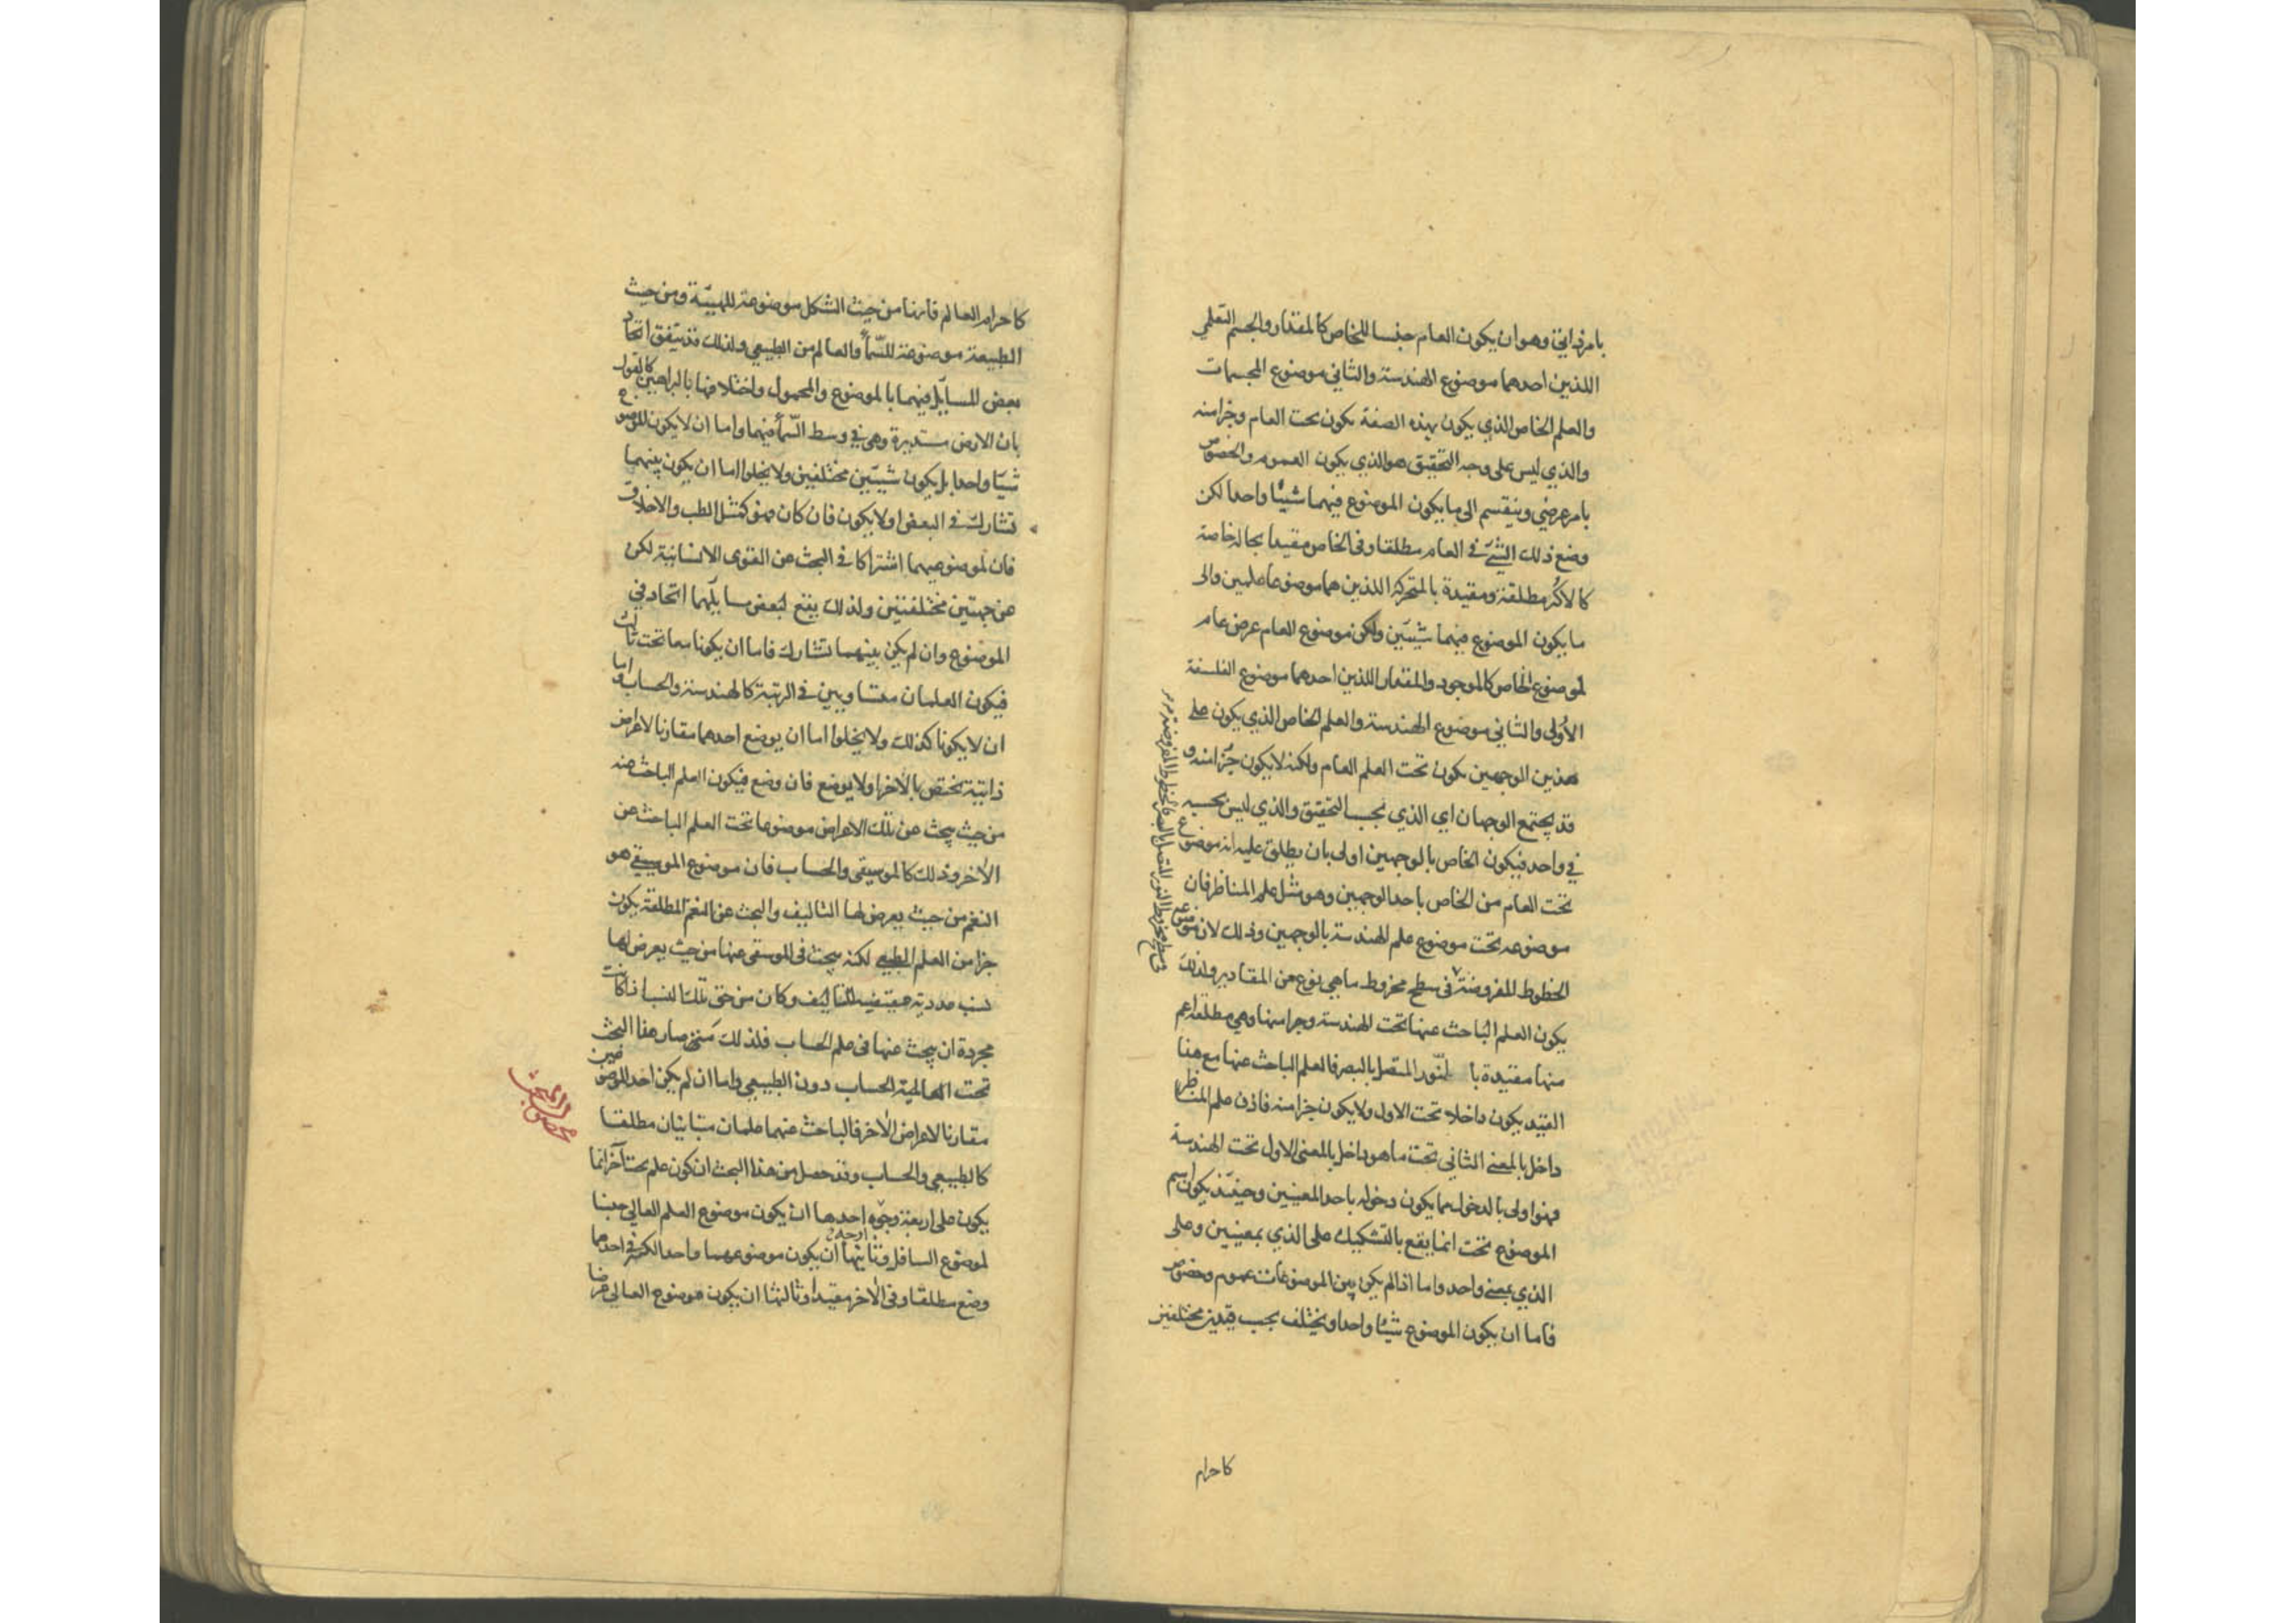 بامر ذاتي وهو ان يكون العام جنسا للخاص كالمقدار والجسم التعلمي
اللذين احدهما موضوع الهندسة والثاني موضوع المجسمات
والعلم الخاص الذي يكون بهذه الصفة يكون تحت العام وجزا منه
والذي ليس على وجه التحقيق هو الذي يكون العموم والخصوص
بامر عرضي وينقسم الى ما يكون الموضوع فيهما شيئا واحدا لكن
وضع ذلك الشئ في العام مطلقا وفي الخاص مقيدا بحالة خاصة
كالاكر مطلقة ومقيدة بالمتحركة اللذين هما موضوعا علمين والى
ما يكون الموضوع فيهما شيئين ولكن موضوع العام عرض عام
لموضوع الخاص كالموجود والمقدار اللذين احدهما موضوع الفلسفة
الاولى والثاني موضوع الهندسة والعلم الخاص الذي يكون على
هذين الوجهين يكون تحت العلم العام ولكنه لا يكون جزا منه و
قد يجتمع الوجهان اي الذي بحسب التحقيق والذي ليس بحسبه
في واحد فيكون الخاص بالوجهين اولى بان يطلق عليه انه موضوع
تحت العام من الخاص باحد الوجهين وهو مثل علم المناظر فان
موضوعه تحت موضوع علم الهندسة بالوجهين وذلك لان موضوعه
الخطوط المفروضة في سطح مخروط ما هي نوع من المقادير ولذلك
يكون العلم الباحث عنها تحت الهندسة وجزا منها وهي مطلقة اعم
منها مقيدة با لنور المتصل بالبصر فالعلم الباحث عنها مع هذا
القيد يكون داخلا تحت الاول ولا يكون جزا منه فاذن علم المناظر
داخل بالمعنى الثاني تحت ما هو داخل بالمعنى الاول تحت الهندسة
فهو اولى بالدخول مما يكون دخوله باحد المعنيين وحينئذ يكون اسم
الموضوع تحت انما يقع بالتشكيك على الذي بمعنيين وعلى
الذي بمعنى واحد واما اذا لم يكن بين الموضوعات عموم وخصوص
فاما ان يكون الموضوع شيئا واحدا ويختلف بحسب قيدين مختلفين
في سطح مخروط النور المتصل بالبصر فالخطوط المفروضة
كاحرام
كاحرام العالم فانها من حيث الشكل موضوعة للهيئة ومن حيث
الطبيعة موضوعة للسماء والعالم من الطبيعي ولذلك قد يتفق اتحاد
بعض المسايل فيهما بالموضوع والمحمول واختلافها بالبراهين كالقول
بان الارض مستديرة وهي في وسط السماء فيهما واما ان لا يكون الموضوع
شيئا واحدا بل يكون شيئين مختلفين ولا يخلوا اما ان يكون بينهما
تشارك في البعض او لا يكون فان كان فهو كمثل الطب والاخلاق
فان لموضوعيهما اشتراكا في البحث عن القوى الانسانية لكن
عن جهتين مختلفتين ولذلك يقع لبعض مسايلهما اتحاد في
الموضوع وان لم يكن بينهما تشارك فاما ان يكونا معا تحت ثالث
فيكون العلمان متساويين في الرتبة كالهندسة والحساب واما
ان لا يكونا كذلك ولا يخلوا اما ان يوضع احدهما مقارنا لاعراض
ذاتية تختص بالاخر او لا يوضع فان وضع فيكون العلم الباحث عنه
من حيث يبحث عن تلك الاعراض موضوعا تحت العلم الباحث عن
الاخر وذلك كالموسيقى والحساب فان موضوع الموسيقى هو
النغم من حيث يعرض لها التاليف والبحث عن النغم المطلقة يكون
جزا من العلم الطبيعي لكنه يبحث في الموسقى عنها من حيث يعرض لها
نسب عددية مقتضية للتاليف وكان من حق تلك النسب اذا كانت
مجردة ان يبحث عنها في علم الحساب فلذلك صار هذا البحث
تحت الحساب دون الطبيعي واما ان لم يكن احد الموضوعين
مقارنا لاعراض الاخر فالباحث عنهما علمان متباينان مطلقا
كالطبيعي والحساب وقد حصل من هذا البحث ان كون علم تحت آخر انما
يكون على اربعة وجوه احدها ان يكون موضوع العلم العالي جنسا
لموضوع السافل وثانيها ان يكون موضوعهما واحدا لكنه في احدهما
وضع مطلقا وفي الاخر مقيدا وثالثها ان يكون موضوع العالي عرضا